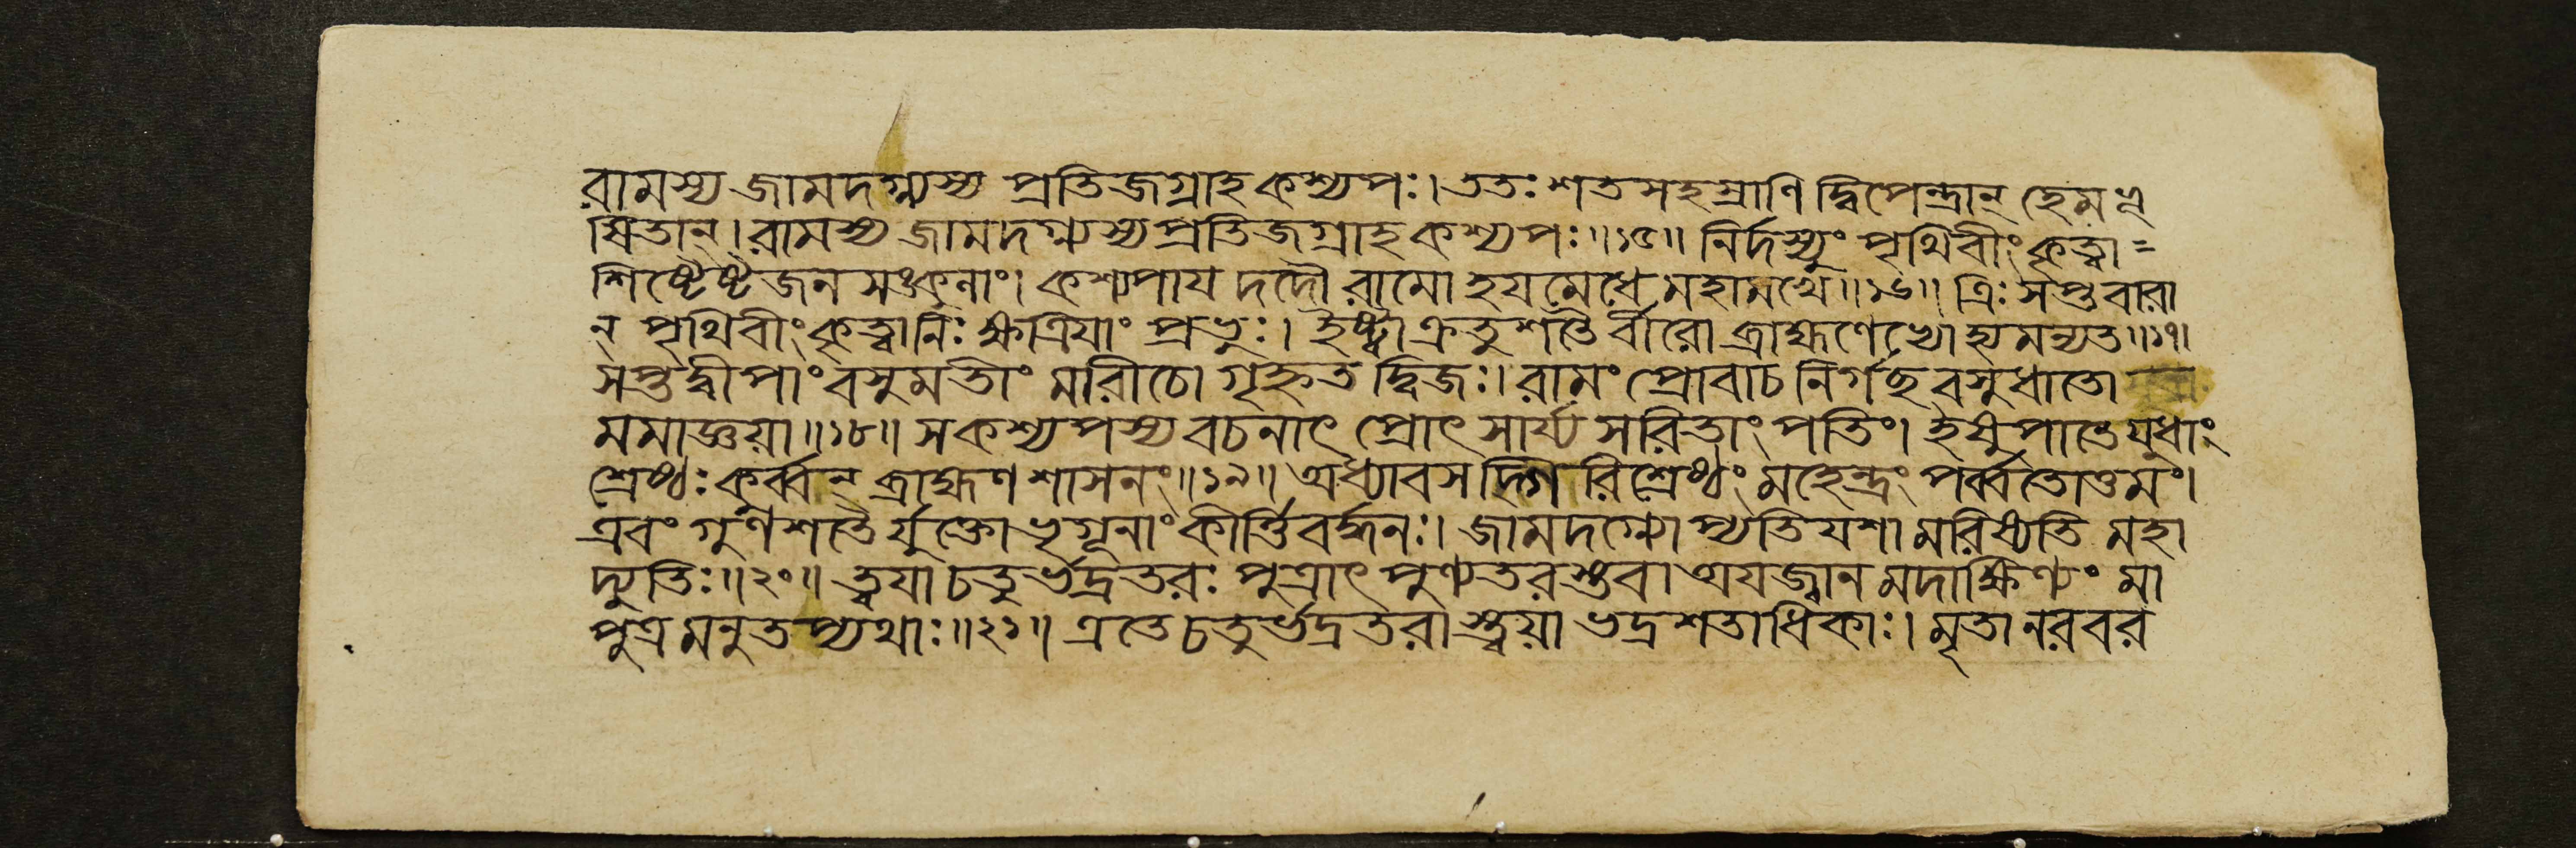 রামস্য জামদগ্ন্যস্য প্রতিজগ্রাহ কশ্যপঃ। ততঃ শতসহস্রাণি দ্বিপেন্দ্রান্ হেমভূ
ষিতান্। রামস্য জামদগ্ন্যস্য প্রতিজগ্রাহ কশ্যপঃ॥১৫॥ নির্দস্যুং পৃথিবীং কৃত্বা=
শিষ্টেষ্টজন সঙ্কুলাং। কশ্যপায় দদৌ রামো হয়মেধে মহামখে॥১৬॥ ত্রিঃ সপ্তবারা
ন্ পৃথিবীং কৃত্বা নিঃ ক্ষত্রিয়াং প্রভুঃ। ইষ্ট্বা ক্রতুশতৈর্বীরো ব্রাহ্মণেভ্যো হ্যমন্যত॥১৭॥
সপ্তদ্বীপাং বসুমতীং মারীচো গৃহ্নত দ্বিজঃ। রামং প্রোবাচ নির্গছ বসুধাতো
মমাজ্ঞয়া॥১৮॥ স কশ্যপস্য বচনাৎ প্রোৎসার্য্য সরিতাং পতিং। ইষুপাতে যুধাং
শ্রেষ্ঠঃ কুর্ব্বন্ ব্রাহ্মণশাসনং॥১৯॥ অধ্যাবসদ্গিরিশ্রেষ্ঠং মহেন্দ্রং পর্ব্বতোত্তমং।
এবং গুণশতৈর্যুক্তো ভৃগূনাং কীর্ত্তিবর্দ্ধনঃ। জামদগ্ন্যোপ্যতিযশা মরিষ্যতি মহা
দ্যুতিঃ॥২০॥ ত্বয়া চতুর্ভদ্রতরঃ পুত্রাৎ পুণ্যতরস্তব। অযজ্বানমদাক্ষিণ্যং মা
পুত্রমনুতপ্যথাঃ॥২১॥ এতে চতুর্ভদ্রতরাস্ত্বয়া ভদ্রশতাধিকাঃ। মৃতা নরবর